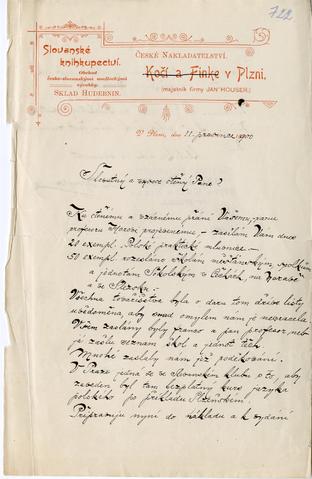 722
Slovanské
knihkupectví.
Obchod
česko-slovanskými uměleckými
výrobky.
SKLAD HUDEBNIN.
ČESKÉ NAKLADATELSTVÍ.
Kočí a Finke v Plzni.
(majetník firmy JAN HOUSER.)
V Plzni, dne 11. prosince 1900
Slovutný a vysoce ctěný Pane!
Ku ctěnému a vzácnému přání Vašemu, panu
professoru pronesenému – zasílám Vám dnes
20 exempl. Polské praktické mluvnice –
50 exempl. rozesláno školám měšťanským, spolkům
a jednotám Sokolským v Čechách, na Moravě
a ve Slezsku.
Všechna byla o daru tom dříve listy
uvědoměna, aby snad omylem nám je nevracela.
Všem zaslány byly franco a pan professor
zašle seznam škol a jednot těch.
Mnohé zaslaly nám již poděkování.
V Praze jedná se ve Slovanském klubu o to, aby
zaveden byl tam bezplatný kurs jazyka
polského po příkladu Plzeňském.
Připravuji nyní do nákladu a k vydání